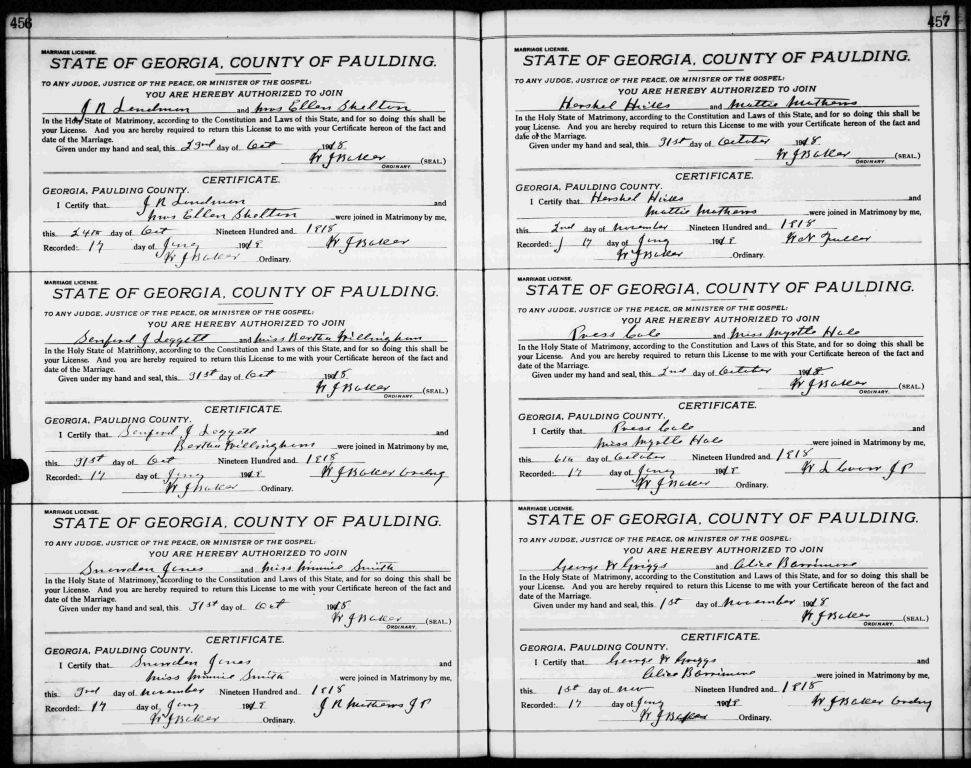 456
MARRIAGE LICENSE.
STATE OF GEORGIA, COUNTY OF PAULDING.
TO ANY JUDGE, JUSTICE OF THE PEACE, OR MINISTER OF THE GOSPEL:
YOU ARE HEREBY AUTHORIZED TO JOIN
J R and Mrs Ellen Shelton
In the Holy State of Matrimony, according to the Constitution and Laws of this State, and for so doing this shall be
your License. And you are hereby required to return this License to me with your Certificate hereon of the fact and
date of the Marriage.
Given under my hand and seal, this 23rd day of Oct 1918
W J Baker (SEAL.)
ORDINARY.
CERTIFICATE.
GEORGIA, PAULDING COUNTY.
I Certify that J R and
Mrs Ellen Shelton were joined in Matrimony by me,
this 24th day of Oct Nineteen Hundred and 1918
Recorded: 17 day of 191 W J Baker
W J Baker Ordinary.
MARRIAGE LICENSE.
STATE OF GEORGIA, COUNTY OF PAULDING.
TO ANY JUDGE, JUSTICE OF THE PEACE, OR MINISTER OF THE GOSPEL:
YOU ARE HEREBY AUTHORIZED TO JOIN
Senford J Leggett and Miss Bertha Willingham
In the Holy State of Matrimony, according to the Constitution and Laws of this State, and for so doing this shall be
your License. And you are hereby required to return this License to me with your Certificate hereon of the fact and
date of the Marriage.
Given under my hand and seal, this 31st day of Oct 1918
W J Baker (SEAL.)
ORDINARY.
CERTIFICATE.
GEORGIA, PAULDING COUNTY.
I Certify that Senford J Leggett and
Bertha Willingham were joined in Matrimony by me,
this 31st day of Oct Nineteen Hundred and 1918
Recorded: 17 day of 191 W J Baker Ordny
W J Baker Ordinary.
MARRIAGE LICENSE.
STATE OF GEORGIA, COUNTY OF PAULDING.
TO ANY JUDGE, JUSTICE OF THE PEACE, OR MINISTER OF THE GOSPEL:
YOU ARE HEREBY AUTHORIZED TO JOIN
Snowden Jones and Miss Minnie Smith
In the Holy State of Matrimony, according to the Constitution and Laws of this State, and for so doing this shall be
your License. And you are hereby required to return this License to me with your Certificate hereon of the fact and
date of the Marriage.
Given under my hand and seal, this 31st day of Oct 1918
W J Baker (SEAL.)
ORDINARY.
CERTIFICATE.
GEORGIA, PAULDING COUNTY.
I Certify that Snowden Jones and
Miss Minnie Smith were joined in Matrimony by me,
this 3rd day of November Nineteen Hundred and 1918
Recorded: 17 day of 191 J R Mathews J P
W J Baker Ordinary.
457
MARRIAGE LICENSE.
STATE OF GEORGIA, COUNTY OF PAULDING.
TO ANY JUDGE, JUSTICE OF THE PEACE, OR MINISTER OF THE GOSPEL:
YOU ARE HEREBY AUTHORIZED TO JOIN
Hershel and Mattie Mathews
In the Holy State of Matrimony, according to the Constitution and Laws of this State, and for so doing this shall be
your License. And you are hereby required to return this License to me with your Certificate hereon of the fact and
date of the Marriage.
Given under my hand and seal, this 31st day of October 1918
W J Baker (SEAL.)
ORDINARY.
CERTIFICATE.
GEORGIA, PAULDING COUNTY.
I Certify that Hershel and
Mattie Mathews were joined in Matrimony by me,
this 2nd day of November Nineteen Hundred and 1918
Recorded: 17 day of 191 W N Fuller
W J Baker Ordinary.
MARRIAGE LICENSE.
STATE OF GEORGIA, COUNTY OF PAULDING.
TO ANY JUDGE, JUSTICE OF THE PEACE, OR MINISTER OF THE GOSPEL:
YOU ARE HEREBY AUTHORIZED TO JOIN
Press Cole and Miss Myrtle Hale
In the Holy State of Matrimony, according to the Constitution and Laws of this State, and for so doing this shall be
your License. And you are hereby required to return this License to me with your Certificate hereon of the fact and
date of the Marriage.
Given under my hand and seal, this 2nd day of October 1918
W J Baker (SEAL.)
ORDINARY.
CERTIFICATE.
GEORGIA, PAULDING COUNTY.
I Certify that Press Cole and
Miss Myrtle Hale were joined in Matrimony by me,
this 6th day of October Nineteen Hundred and 1918
Recorded: 17 day of 191 W L J P
W J Baker Ordinary.
MARRIAGE LICENSE.
STATE OF GEORGIA, COUNTY OF PAULDING.
TO ANY JUDGE, JUSTICE OF THE PEACE, OR MINISTER OF THE GOSPEL:
YOU ARE HEREBY AUTHORIZED TO JOIN
George W Griggs and Alice Barrimore
In the Holy State of Matrimony, according to the Constitution and Laws of this State, and for so doing this shall be
your License. And you are hereby required to return this License to me with your Certificate hereon of the fact and
date of the Marriage.
Given under my hand and seal, this 1st day of November 1918
W J Baker (SEAL.)
ORDINARY.
CERTIFICATE.
GEORGIA, PAULDING COUNTY.
I Certify that George W Griggs and
Alice Barrimore were joined in Matrimony by me,
this 1st day of Nov Nineteen Hundred and 1918
Recorded: 17 day of 191 W J Baker Ordny
W J Baker Ordinary.